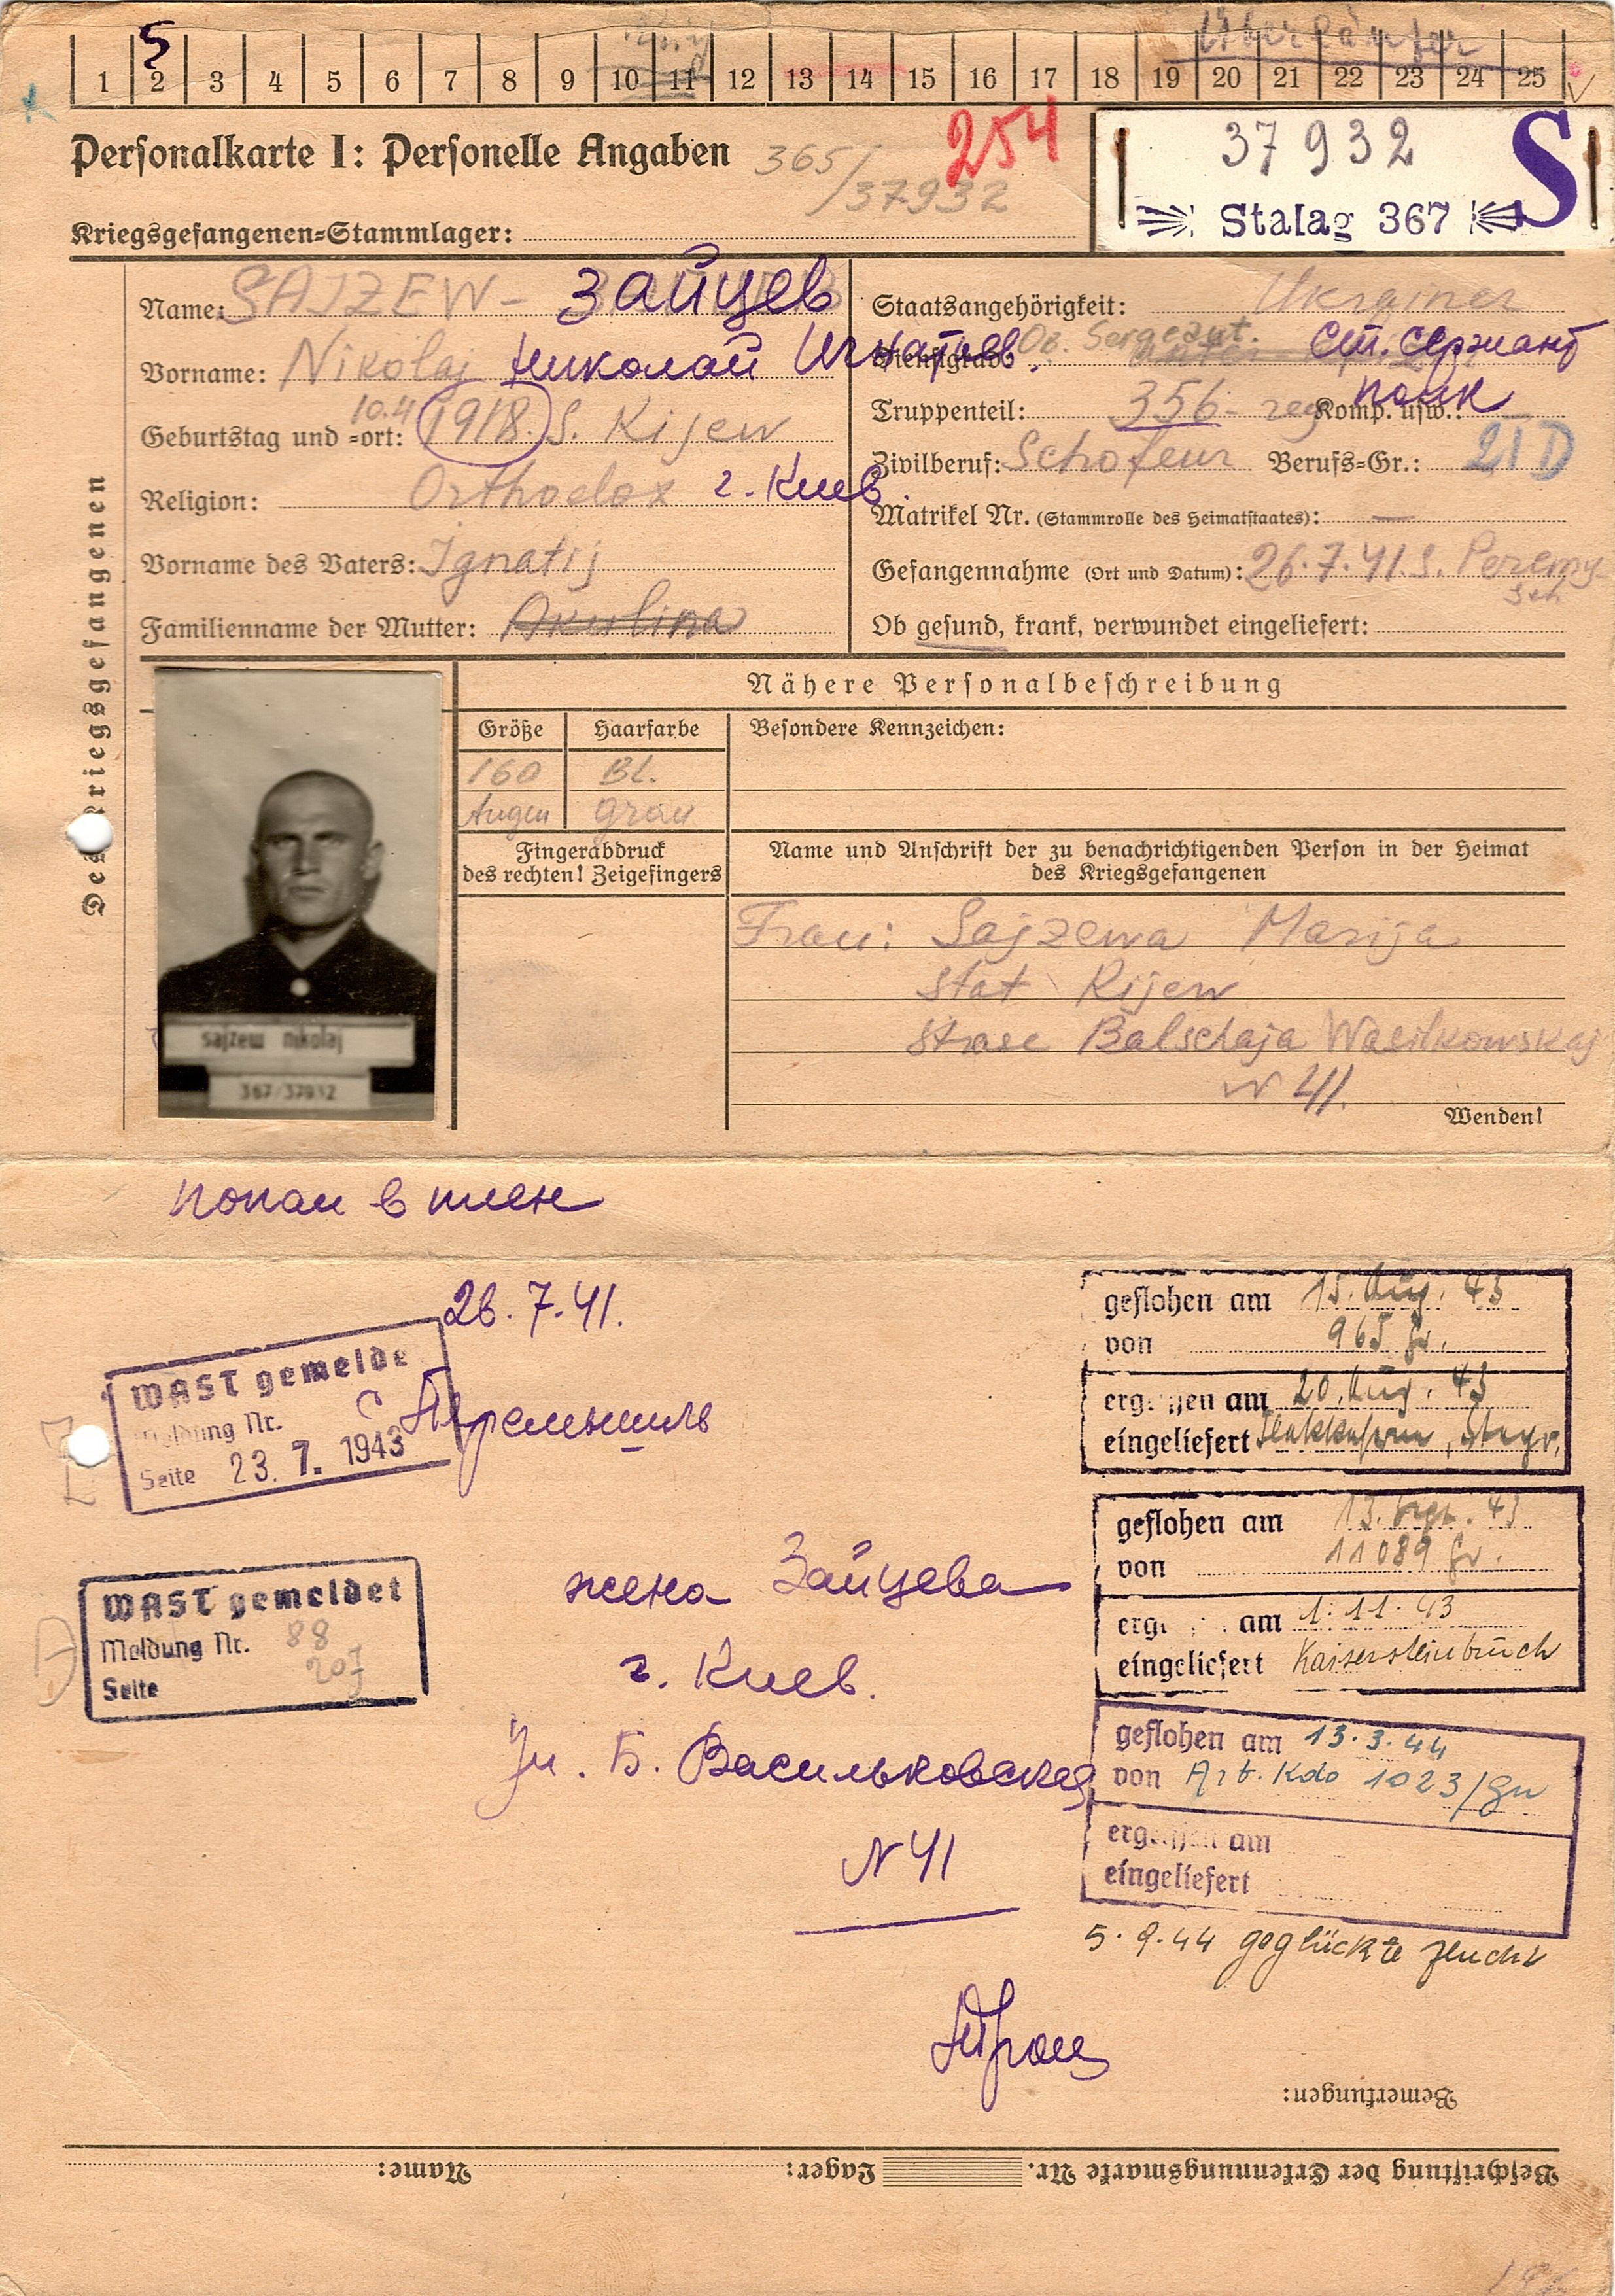 5
1 2 3 4 5 6 7 8 9 10 11 12 13 14 15 16 17 18 19 20 21 22 23 24 25
Überläufer
Personalkarte I: Personelle Angaben
365/37932
254
37932
S
Stalag 367
Kriegsgefangenen-Stammlager:
Des Kriegsgefangenen
Name: SAJZEW - Зайцев
Vorname: Nikolaj Николай Игнатьев.
Geburtstag und -ort: 10.4 1918. S. Kijew
Religion: Orthodox г. Киев.
Vorname des Vaters: Ignatij
Familienname der Mutter: Akulina
Staatsangehörigkeit: Ukrainer
Dienstgrad: Ob. Sergeant. ст. сержант
Truppenteil: 356. reg Komp. usw.: полк
Zivilberuf: Schofeur Berufs-Gr.: 21 D
Matrikel Nr. (Stammrolle des Heimatstaates): —
Gefangennahme (Ort und Datum): 26.7.41. S. Peremysch
Ob gesund, krank, verwundet eingeliefert:
Nähere Personalbeschreibung
Größe Haarfarbe Besondere Kennzeichen:
160 Bl.
Augen grau
Fingerabdruck
des rechten! Zeigefingers
Name und Anschrift der zu benachrichtigenden Person in der Heimat
des Kriegsgefangenen
Frau: Sajzewa Marija
stat Kijew
strase Balschaja Wasilkowskaj
N 41.
Wenden!
sajzew nikolaj
367/37932
попал в плен
26.7.41.
с Перемышль
WASt gemelde
Meldung Nr.
Seite 23. 7. 1943
WASt gemeldet
Meldung Nr. 88
Seite 207
жена Зайцева
г. Киев.
Ул. Б. Васильковская
N 41
geflohen am 15. Aug. 43
von 965 Gw.
ergriffen am 20. Aug. 43
eingeliefert Steyr.
geflohen am 13. Sept. 43
von 11089 Gw.
ergriffen am 1.11.43
eingeliefert Kaisersteinbruch
geflohen am 13.3.44
von Arb. Kdo 1023/Gw
ergriffen am
eingeliefert
5.9.44 geglückte Flucht
Bemerkungen:
Beschriftung der Erkennungsmarke Nr. Lager: Name: